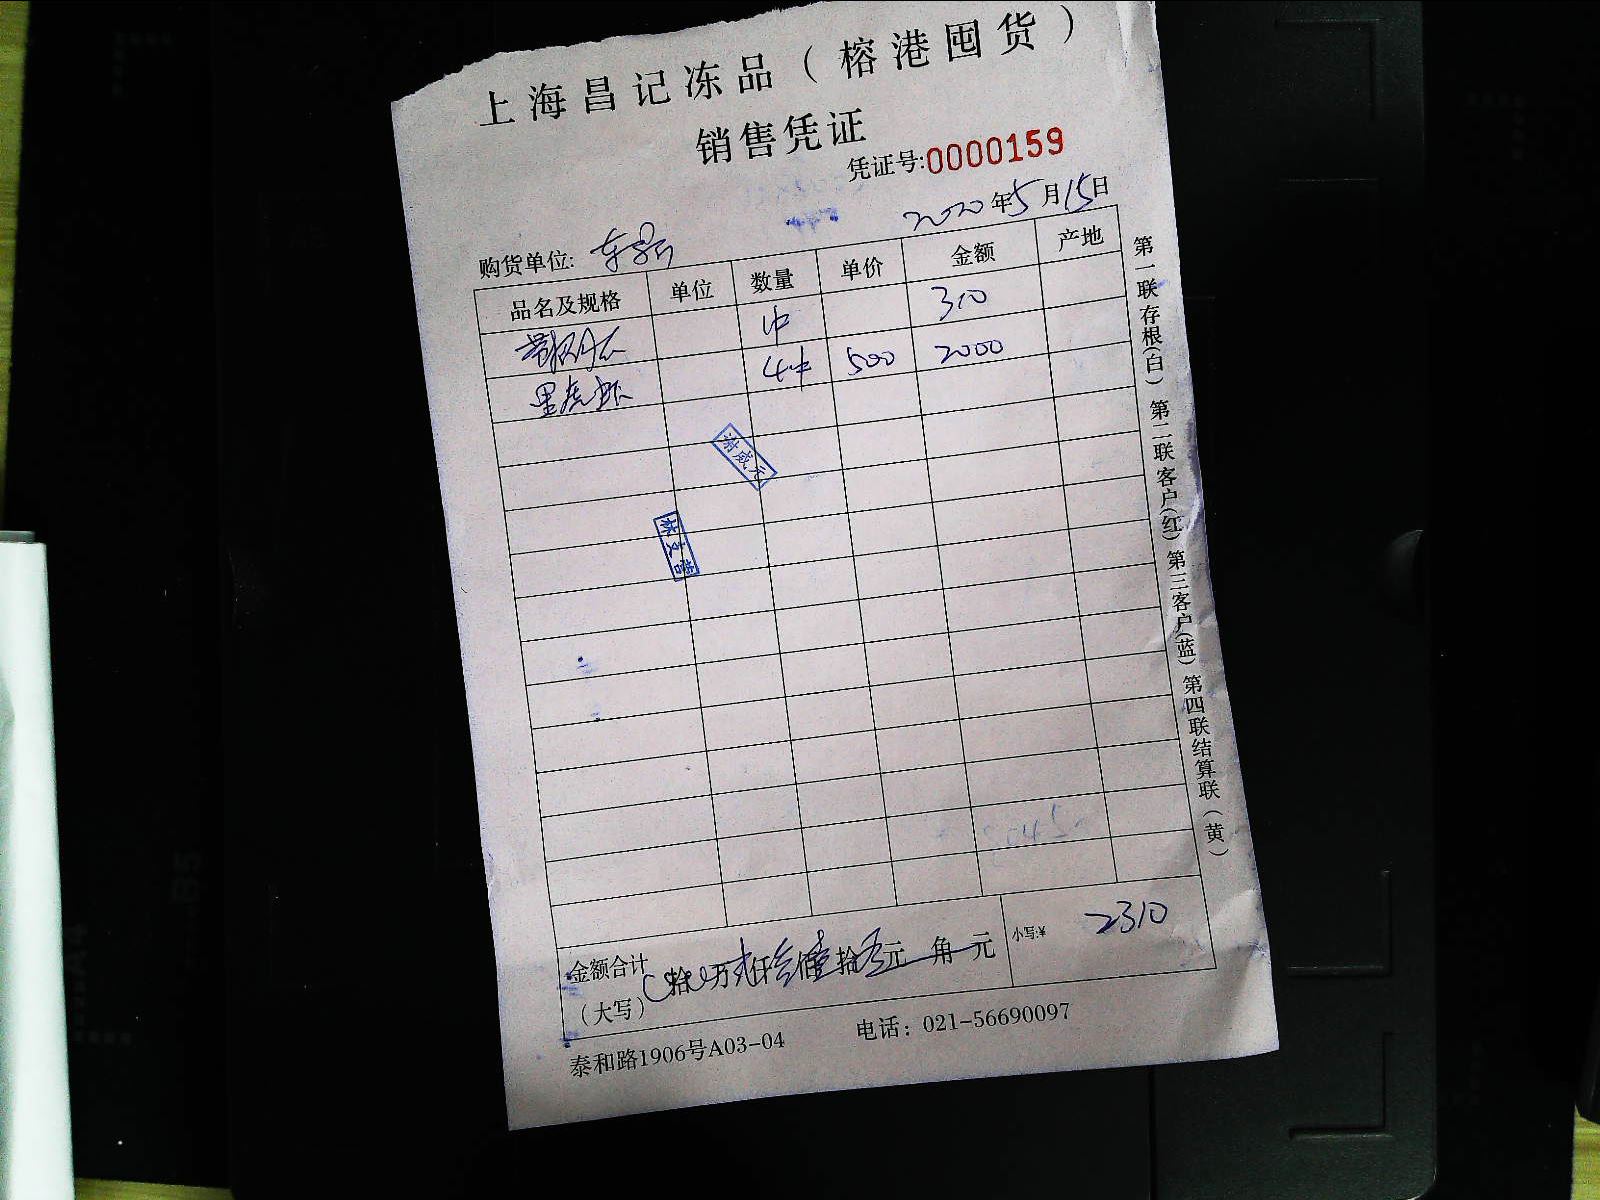 上海昌记冻品（榕港囤货）
销售凭证
凭证号:0000159
2020年5月15日
购货单位:
品名及规格 单位 数量 单价 金额 产地
1件 310
黑虎虾 4件 500 2000
谢威元
林文营
金额合计（大写） 拾 万贰仟叁佰壹拾 元 角 元 小写:¥ 2310
泰和路1906号A03-04 电话：021-56690097
第一联存根(白) 第二联客户(红) 第三客户(蓝) 第四联结算联(黄)